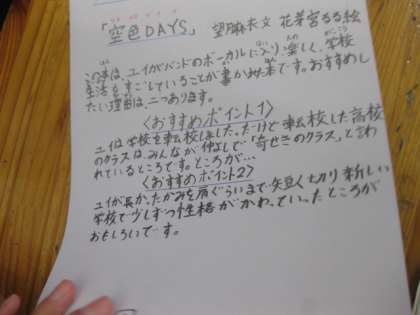 「空色DAYS」 望麻衣文 花芽宮るる絵
この本は、ユイがバンドのボーカルに入り楽しく、学校
生活をすごしていることが書かれた本です。おすすめし
たい理由は二つあります。
〈おすすめポイント1〉
ユイは学校を転校しました。だけど転校した高校
のクラスは、みんなが仲よしで「奇せきのクラス」と言わ
れているところです。ところが…
〈おすすめポイント2〉
ユイが長かったかみを肩ぐらいまで短く切り新しい
学校で少しずつ性格がかわっていったところが
おもしろいです。